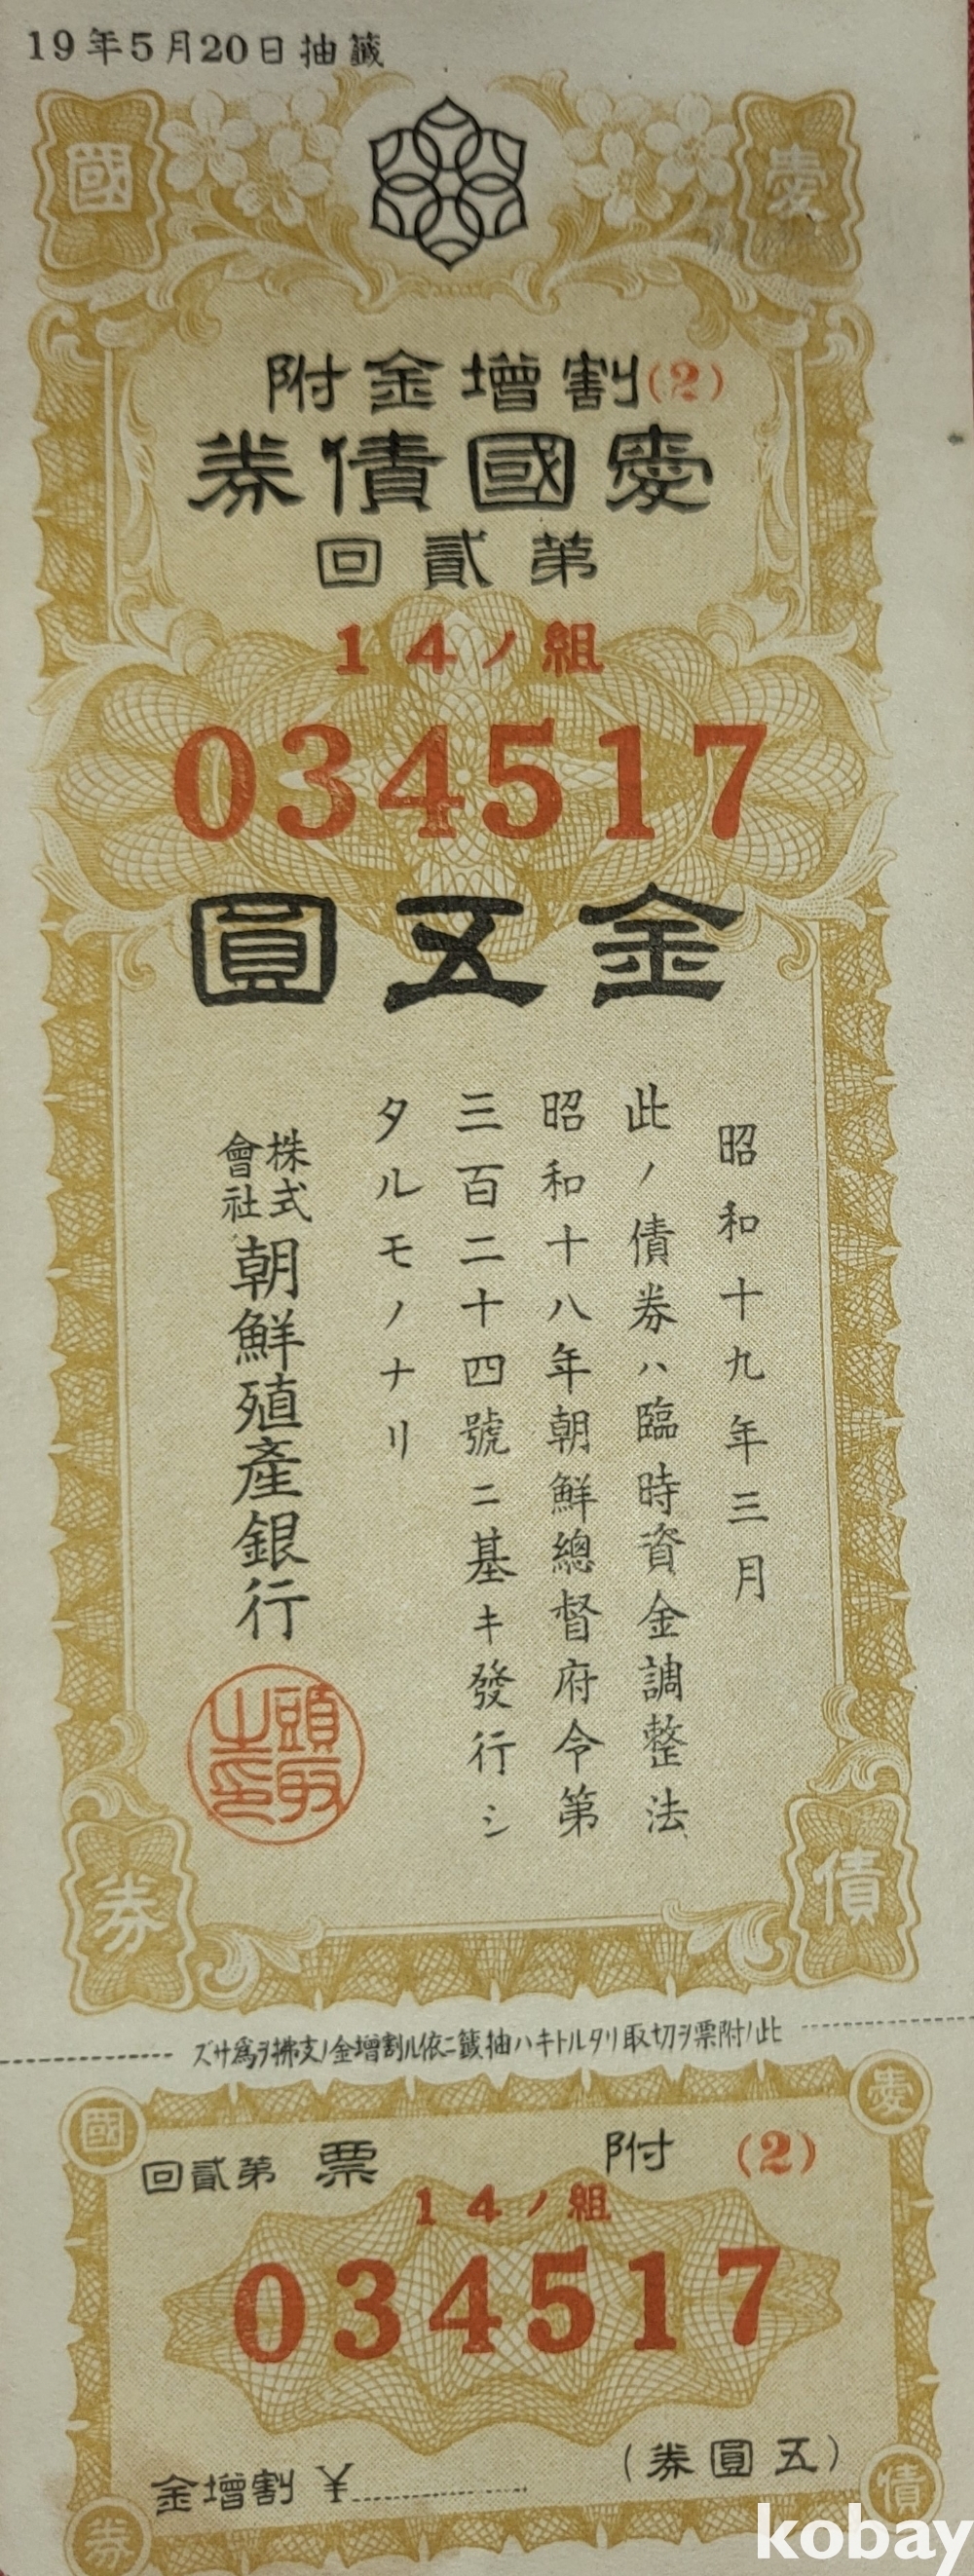 19年5月20日抽籤
國
愛
附金增割(2)
券債國愛
回貳第
14ノ組
034517
圓五金
昭和十九年三月
此ノ債券ハ臨時資金調整法
昭和十八年朝鮮總督府令第
三百二十四號ニ基キ發行シ
タルモノナリ
株式會社朝鮮殖產銀行
頭取之印
券
債
ズサ爲ヲ拂支ノ金增割ル依ニ籤抽ハキトルタリ取切ヲ票附ノ此
國
愛
回貳第 票 附 (2)
14ノ組
034517
金增割 ¥
(券圓五)
券
債
kobay